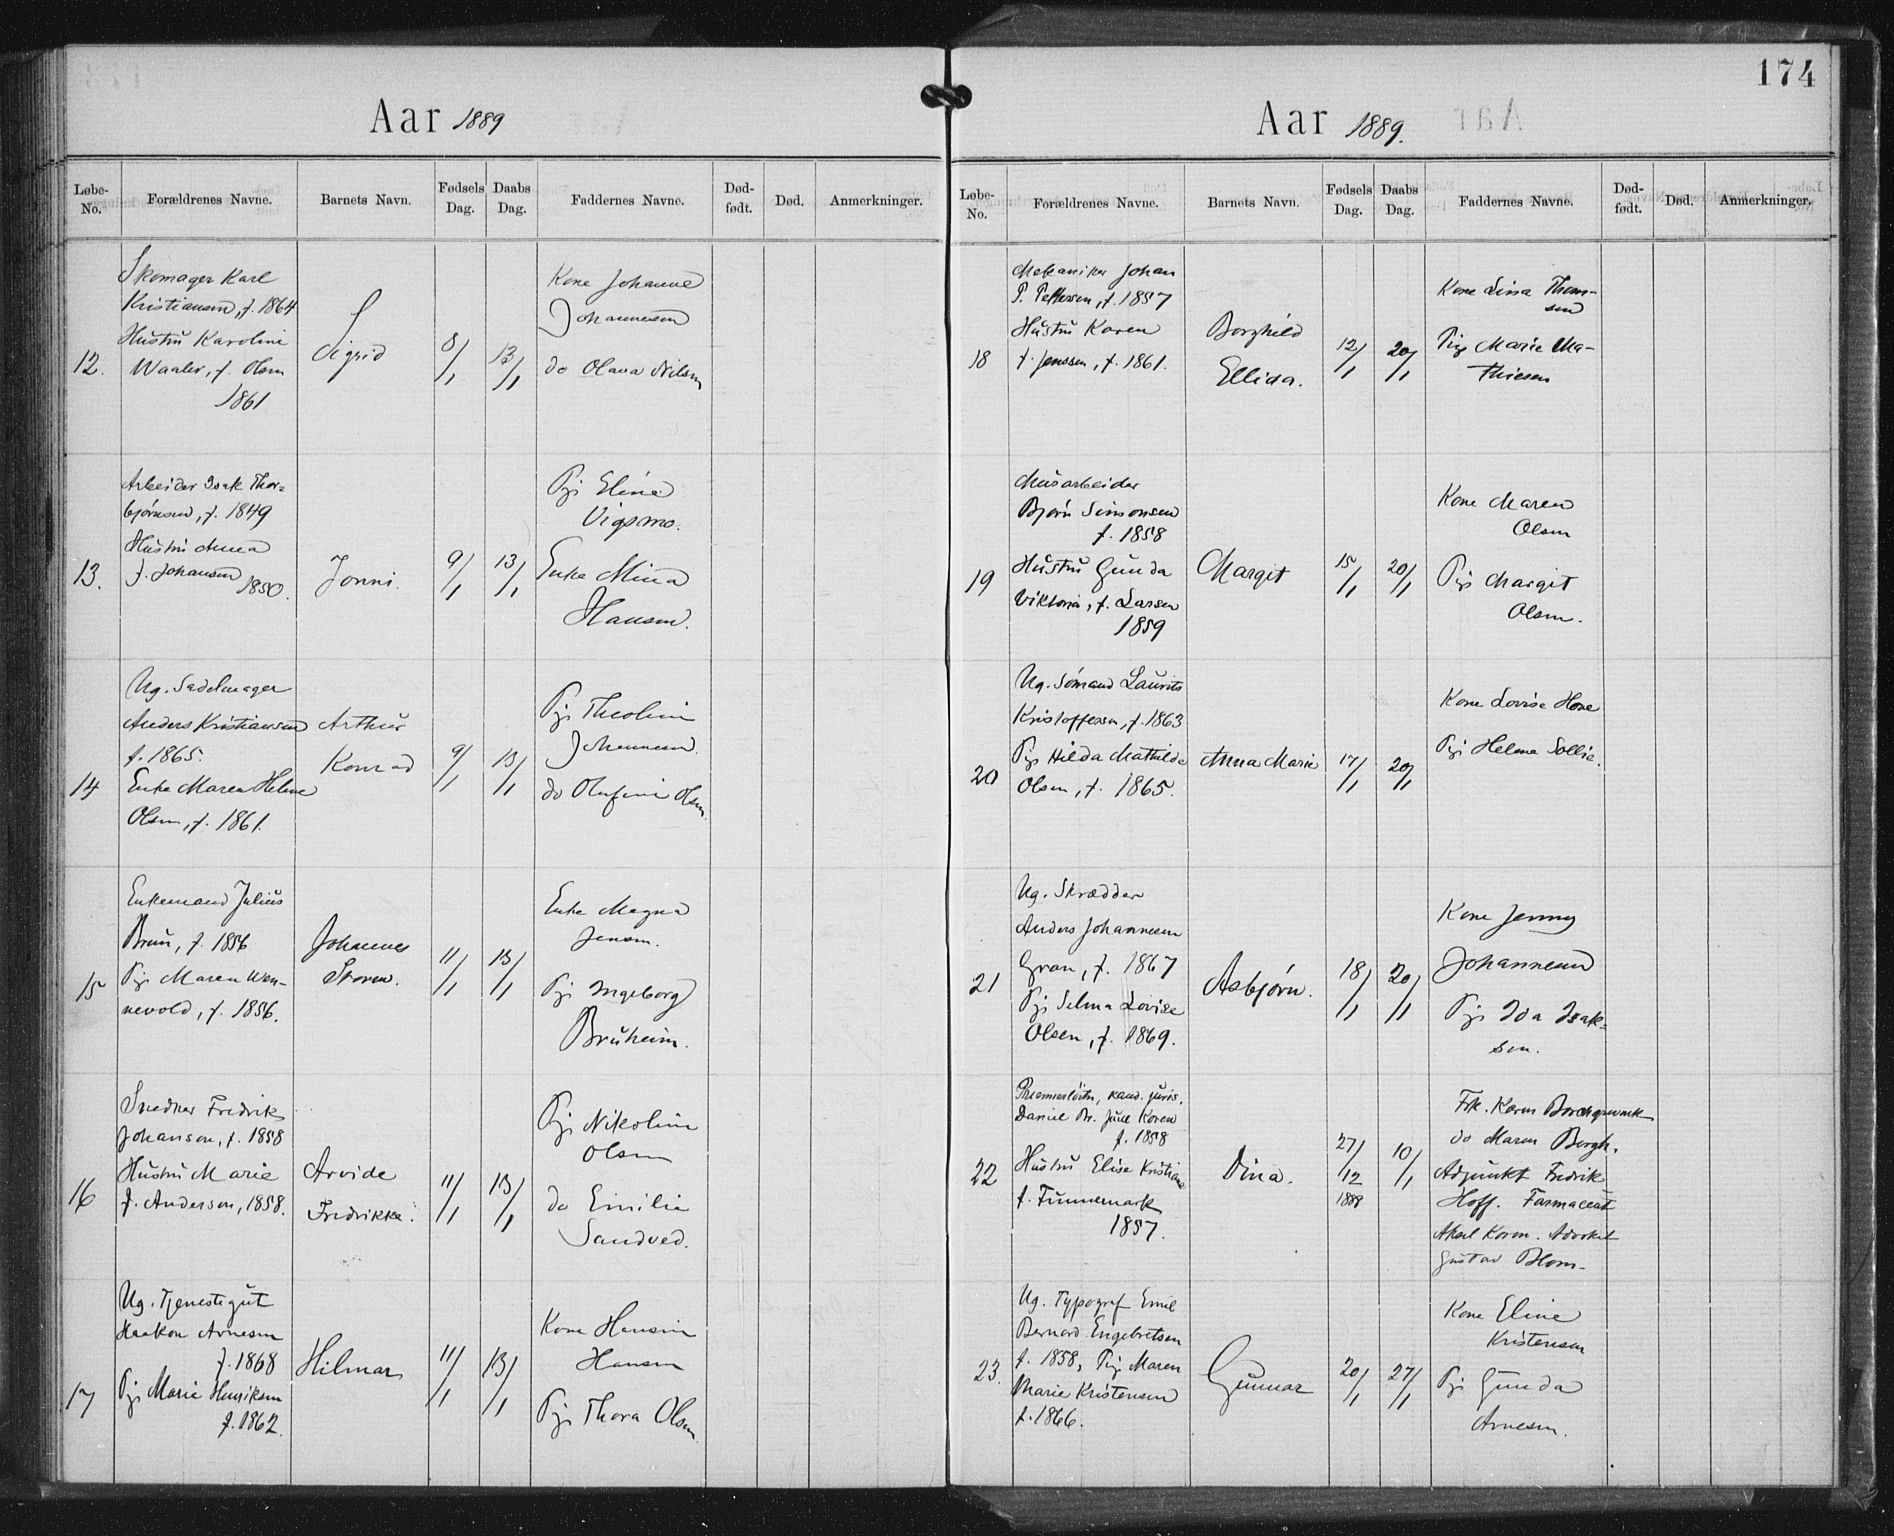 174
Aar 1889
Løbe-No. Forældrenes Navne. Barnets Navn. Fødsels Dag. Daabs Dag. Faddernes Navne. Død-født. Død. Anmerkninger.
12.
Skomager Karl
Kristiansen, f. 1864
Hustru Karoline
Waaler, f. Olsen
1861
Sigrid
8/1
13/1
Kone Johanne
Johannesen
do Olava Nilsen
13.
Arbeider Isak Thor-
bjørnsen, f. 1849
Hustru Anna
f. Johansen
1850.
Jonni.
9/1
13/1
Pige Eline
Vigsmo.
Enke Mina
Hansen.
14
Ug. Sadelmager
Anders Kristiansen
f. 1865.
Enke Maren Helene
Olsen, f. 1861.
Arthur
Konrad
9/1
13/1
Pige Theoline
Johannesen.
do Olufine Olsen
15
Enkemand Julius
Brun, f. 1856
Pige Maren Wen-
nevold, f. 1856.
Johannes
Storen.
11/1
13/1
Enke Magna
Jensen.
Pige Ingeborg
Bruheim.
16
Snedker Fredrik
Johanson, f. 1858
Hustru Marie
f. Anderson, 1858.
Arvide
Fredrikke.
11/1
13/1
Pige Nikoline
Olsen
do Emilie
Sandved.
17
Ug. Tjenestegut
Haakon Arnesen
f. 1868
Pige Marie Henriksen
f. 1862.
Hilmar
11/1
13/1
Kone Hansine
Hansen
Pige Thora Olsen
Aar 1889.
Løbe-No. Forældrenes Navne. Barnets Navn. Fødsels Dag. Daabs Dag. Faddernes Navne. Død-født. Død. Anmerkninger.
18
Mekaniker Johan
P. Pettersen, f. 1857
Hustru Karen
f. Jenssen, f. 1861.
Borghild
Ellida.
12/1
20/1
Kone Lina Thom-
sen
Pige Marie Ma-
thiesen
19
Murarbeider
Bjørn Simonsen
f. 1858
Hustru Gunda
Viktoria, f. Larsen
1859
Margit
15/1
20/1
Kone Maren
Olsen
Pige Margit
Olsen.
20
Ug. Sømand Laurits
Kristoffersen, f. 1863
Pige Hilda Mathilde
Olsen, f. 1865.
Anna Marie
17/1
20/1
Kone Lovise Hove
Pige Helene Sollie.
21
Ug. Skrædder
Anders Johannesen
Gran, f. 1867
Pige Selma Lovise
Olsen, f. 1869.
Asbjørn.
18/1
20/1
Kone Jenny
Johannesen
Pige Ida Isak-
sen.
22
kand. juris.
Daniel Br. Juell Koren
f. 1858
Hustru Elise Kristiane
f. Finnemark
1857.
Dina.
27/12
1888
10/1
Frk. Karen Borchgrevink
do Maren Bergh.
Adjunkt Fredrik
Hoff. Farmaceut
Aksel Koren. Advokat
Gustav Blom-
23.
Ug. Typograf Emil
Bernard Engebretsen
f. 1858, Pige Maren
Marie Kristensen
f. 1866.
Gunnar
20/1
27/1
Kone Eline
Kristensen
Pige Gunda
Arnesen.